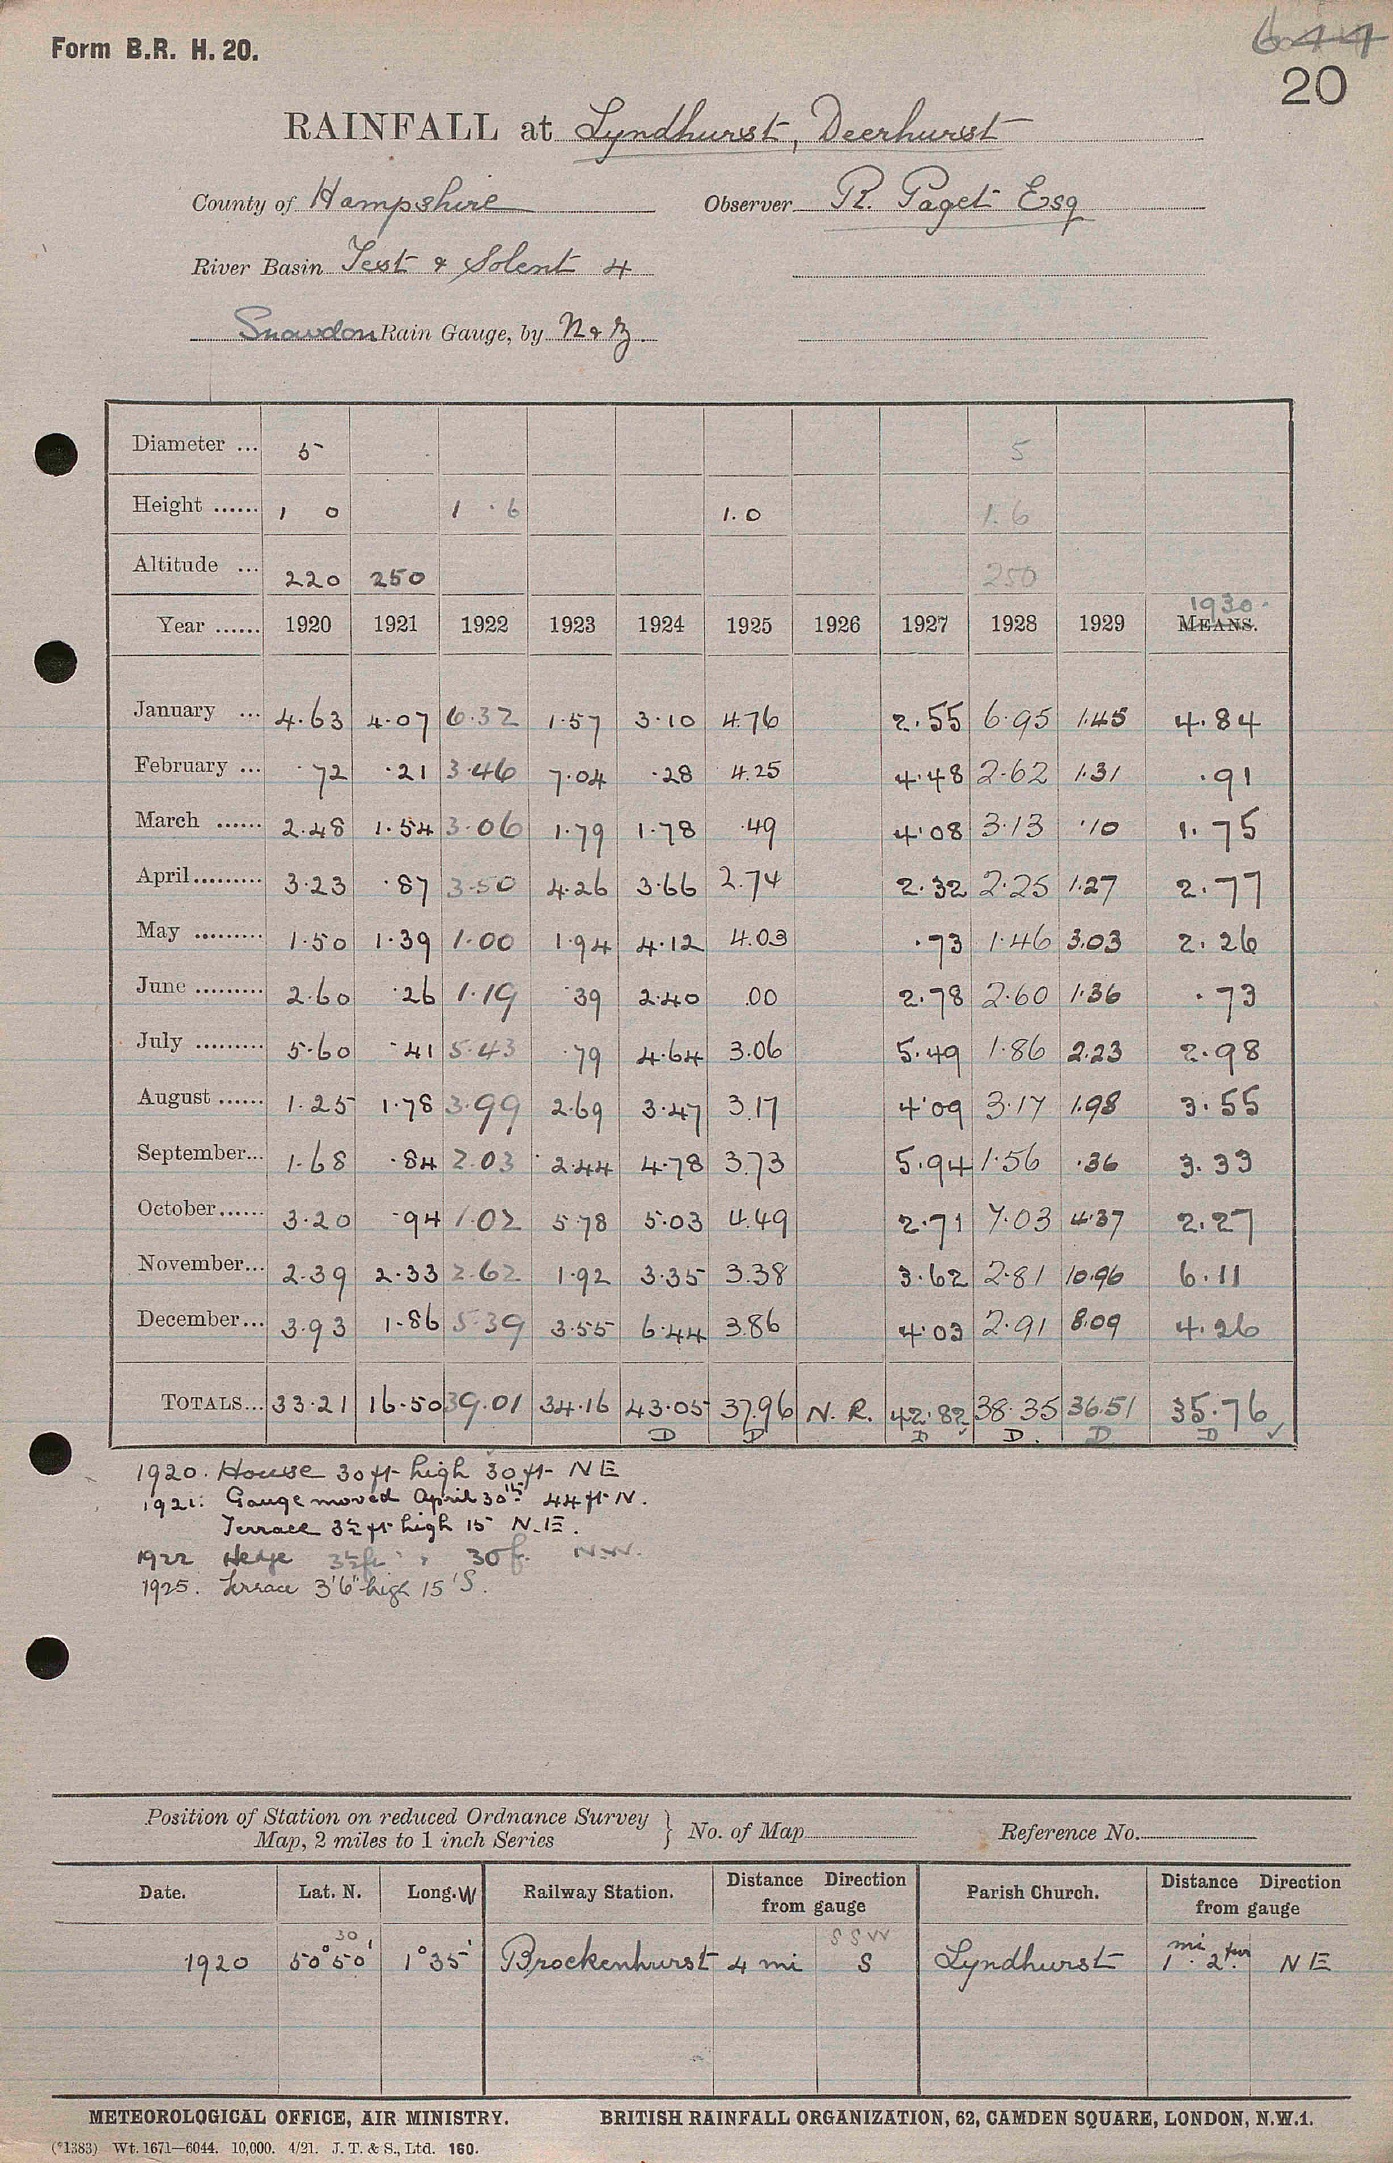 Form B.R. H. 20.
644
20
RAINFALL at Lyndhurst, Deerhurst
County of Hampshire Observer R. Paget Esq
River Basin Test & Solent 4
Snowdon Rain Gauge, by N & Z.
Diameter ... 5 5
Height ...... 1 0 1 . 6 1.0 1.6
Altitude ... 220 250 250
1930.
Year ...... 1920 1921 1922 1923 1924 1925 1926 1927 1928 1929 MEANS.
January ... 4.63 4.07 6.32 1.57 3.10 4.76 2.55 6.95 1.45 4.84
February ... .72 .21 3.46 7.04 .28 4.25 4.48 2.62 1.31 .91
March ...... 2.48 1.54 3.06 1.79 1.78 .49 4.08 3.13 .10 1.75
April......... 3.23 .87 3.50 4.26 3.66 2.74 2.32 2.25 1.27 2.77
May ......... 1.50 1.39 1.00 1.94 4.12 4.03 .73 1.46 3.03 2.26
June ......... 2.60 .26 1.19 .39 2.40 .00 2.78 2.60 1.36 .73
July ......... 5.60 .41 5.43 .79 4.64 3.06 5.49 1.86 2.23 2.98
August ...... 1.25 1.78 3.99 2.69 3.47 3.17 4.09 3.17 1.98 3.55
September... 1.68 .84 2.03 2.44 4.78 3.73 5.94 1.56 .36 3.33
October...... 3.20 .94 1.02 5.78 5.03 4.49 2.71 7.03 4.37 2.27
November... 2.39 2.33 2.62 1.92 3.35 3.38 3.62 2.81 10.96 6.11
December... 3.93 1.86 5.39 3.55 6.44 3.86 4.03 2.91 8.09 4.26
TOTALS... 33.21 16.50 39.01 34.16 43.05 37.96 N. R. 42.82 38.35 36.51 35.76
D D D D. D D
1920. House 30 ft high 30 ft NE
1921: Gauge moved April 30th 44 ft N.
Terrace 3½ ft high 15 N.E.
1922 Hedge 3½ft " 30 f. N.W.
1925. Terrace 3'6" high 15' S.
Position of Station on reduced Ordnance Survey
Map, 2 miles to 1 inch Series } No. of Map Reference No.
Date. Lat. N. Long. W Railway Station. Distance Direction from gauge Parish Church. Distance Direction from gauge
30 SSW
1920 50°50' 1°35' Brockenhurst 4 mi S Lyndhurst 1 mi. 2 fur. NE
METEOROLOGICAL OFFICE, AIR MINISTRY. BRITISH RAINFALL ORGANIZATION, 62, CAMDEN SQUARE, LONDON, N.W.1.
(*1383) Wt. 1671—6044. 10,000. 4/21. J. T. & S., Ltd. 160.